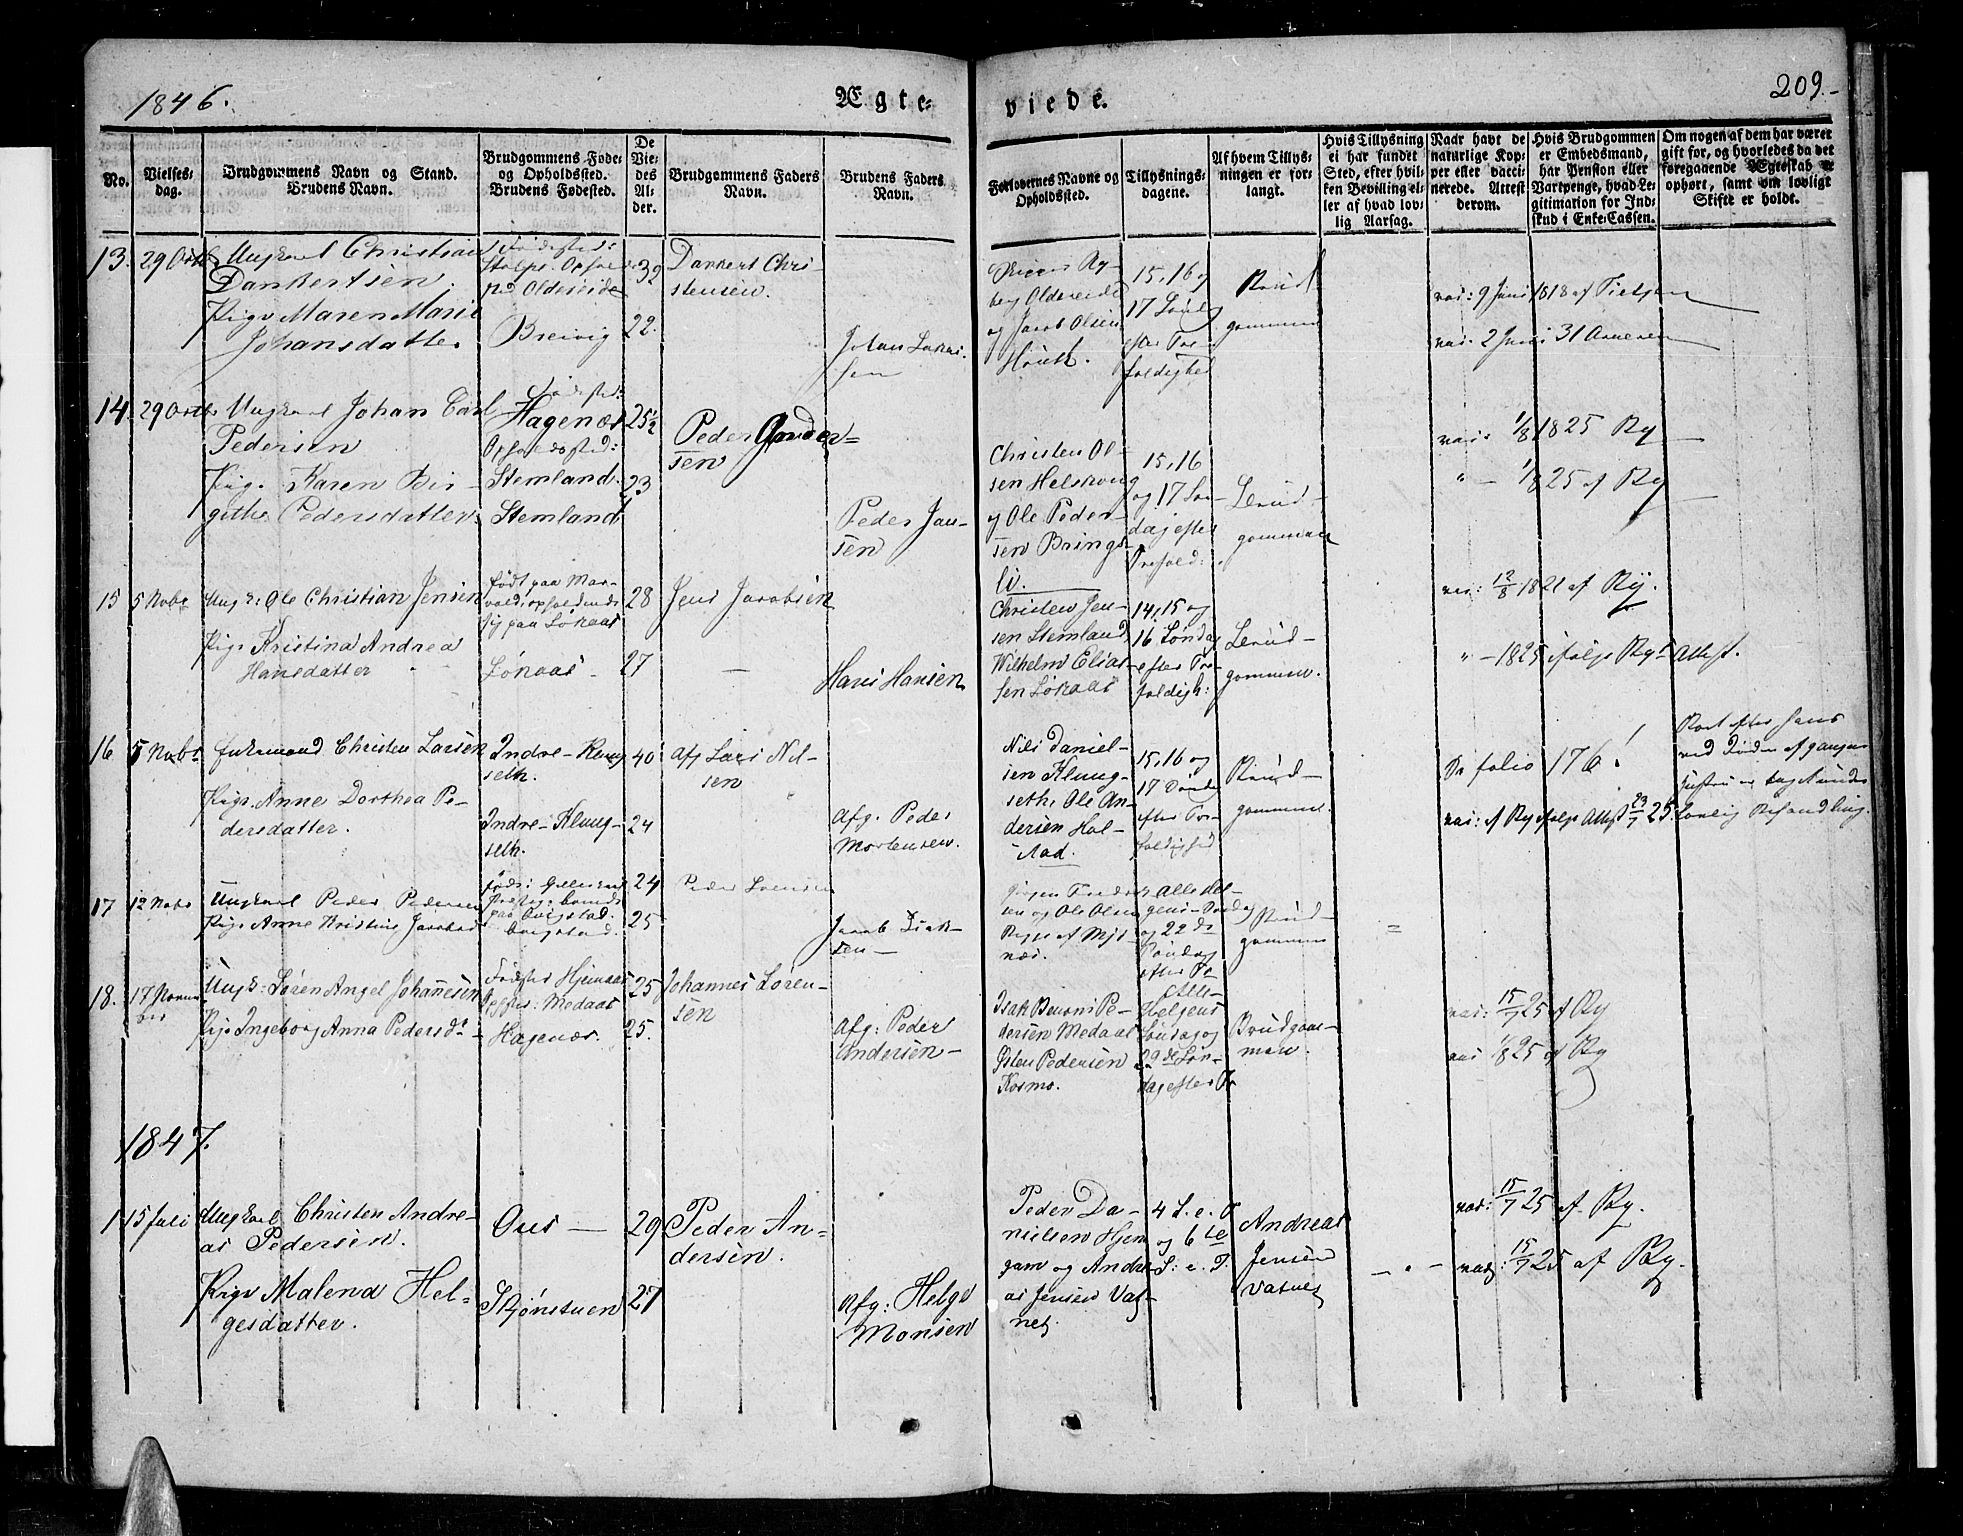 1846.
Ægte=
viede.
209.
No.
Vielses-
dag.
Brudgommens Navn og Stand.
Brudens Navn.
Brudgommens Føde-
og Opholdssted.
Brudens Fødested.
De
Vie-
des
Al-
der.
Brudgommens Faders
Navn.
Brudens Faders
Navn.
Forlovernes Navne og
Opholdssted.
Tillysnings-
dagene.
Af hvem Tillys-
ningen er for-
langt.
Hvis Tillysning
ei har fundet
Sted, efter hvil-
ken Bevilling el-
ler af hvad lov-
lig Aarsag.
Naar havt de
naturlige Kop-
per eller vacci-
nerede. Attest
derom.
Hvis Brudgommen
er Embedsmand,
har Pension eller
Vartpenge, hvad Le-
gitimation for Ind-
skud i Enke-Cassen.
Om nogen af dem har været
gift før, og hvorledes da det
foregaaende Ægteskab er
ophørt, samt om lovligt
Skifte er holdt.
13. 29 Octb
Ungkarl Christian
Dankertsen.
Pige Maren Marie
Johansdatter
Fødested:
Oldereide
Breivig
32
22.
Dankert Chri-
stensen.
Johan Lukas-
sen
Ry-
berg Oldereide
og Jacob Olsen
15, 16 og
17 Sønd
efter Tre-
foldighed
Brud-
gommen
vac: 9 Juni 1818 af Tietjen
vac: 2 Juni 31
14. 29 Octb
Ungkarl Johan Carl
Pedersen
Pige Karen Bir-
githe Pedersdatter
Fødested:
Hagenæs
Opholdssted:
Stemland.
Stemland
25½
23
Peder Ander=
sen
Peder Jan-
sen
Christen Ol-
sen
og Ole Peder-
sen Brings-
li.
15, 16
og 17 Søn-
dag efter
Trefold:
Brud-
gommen
vac: 1/8 1825 Ry
" - 1/8 25 af Ry
15 5 Nobr
Ungk: Ole Christian Jensen
Pige Kristina Andrea
Hansdatter
Født paa Mar-
vold, opholdende
sig paa Løkaas
Løkaas
28
27
Jens Jacobsen
Hans Hansen
Christen Jen-
sen Stemland,
Wilhelm Elias-
sen Løkaas
14, 15 og
16 Søndag
efter Tre-
foldigh:
Brud-
gommen.
vac: 12/8 1821 af Ry.
" - 1825 ifølge Rys Attest.
16 5 Nobr
Enkemand Christen Larsen
Pige Anne Dorthea Pe-
dersdatter.
Indre-Klung-
seth.
Indre-Klung-
seth.
40
24
Afg Lars Nil-
sen
Afg. Peder
Mortensen.
Nils Daniel-
sen Klung-
seth, Ole An-
dersen Hal-
stad.
15, 16 og
17 Søndag
efter Tre-
foldighed
Brud-
gommen.
Se folio 176!
vac: af Ry ifølge Attest 23/7 25.
Boet efter hans
ved Døden afgangne
Hustru er tagen under
Lovlig Behandling.
17 12 Nobr
Ungkarl Peder Pedersen
Pige Anne Kristine Jacobsd
24
25
Peder
Jacob
sen
og Ole Olsen
af Mjs-
næs.
Alle Hel-
gens-Søndag
og 22 de
Søndag
efter Tr
Brud-
gommen
=
18. 17 Novem
ber
Ungk: Søren Angel Johannesen
Pige Ingeborg Anna Pedersdr
Fødested Hjemaas
Opsted: Medaas
Hagenæs.
25
25.
Johannes Søren-
sen
Afg: Peder
Andersen
Isak Benoni Pe-
dersen Medaas
Østen Pedersen
Kosmo.
Alle-
Helgens
Søndag og
22de Søn-
dag efter Tr
Brudgom-
men.
vac: 15/7 25 af Ry
vac 1/8 25 af Ry
1847.
1 15 Juli
Ungkarl Christen Andre-
as Pedersen.
Pige Malena Hel-
gesdatter.
Øves
Skjønstuen
29
27
Peder An-
dersen.
Afg: Helge
Monsen
Peder Da-
nielsen Hjem
gam og Andre-
as Jensen Vat-
net.
4 S. e. T
og 6 te
S: e. T.
Andreas
Jensen
Vatnet
vac: 15/7 25 af Ry.
vac: 15/7 25 af Ry.